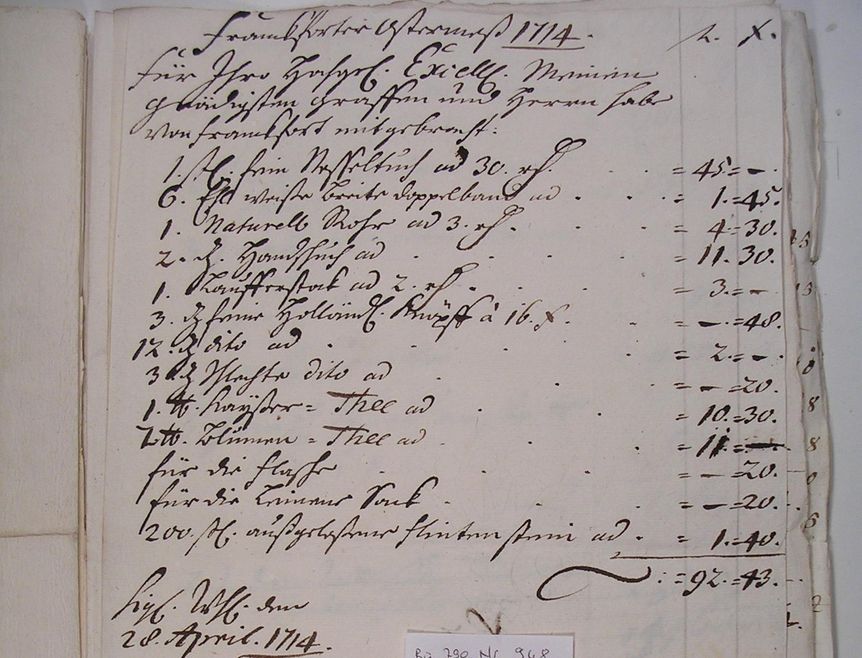 Franckforter Ostermeß 1714. f. X.
Für Ihro Hochgl. Excell. Meinen
gnädigsten graffen und Herrn habe
von franckfort mitgebracht:
1. stl. fein Nesseltuch ad 30. rth. = 45 = —.
6. Ell weiße breite doppelband ad = 1. = 45.
1. Naturell Rohr ad 3. rth. = 4 = 30.
2. Handschuch ad = 11. 30.
1. Laufferstock ad 2. rth. = 3. = —
3. feine Holländ. Knöpff à 16. X. = — = 48.
12. dito ad = 2. = —.
3 schlechte dito ad = — = 20.
1. ℔. Kayßer = Thee ad = 10. = 30.
℔. Blumen = Thee ad = 11 = —
für die flasche = — = 20.
für die Leinene Sack = — = 20.
200. stl. außgelaßene flintenstein ad = 1. = 40.
: = 92. = 43.
den
28. April. 1714.
Nr. 948